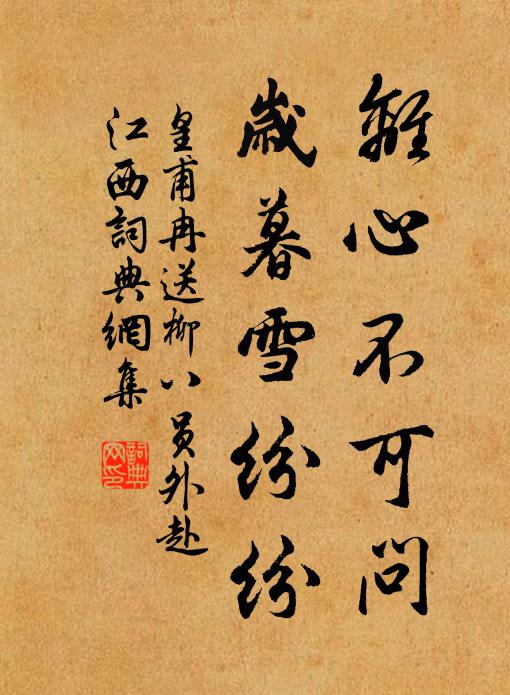 離心不可問
歲暮雪紛紛
皇甫冉送柳八員外赴
江西詞典網集
詞典
网印